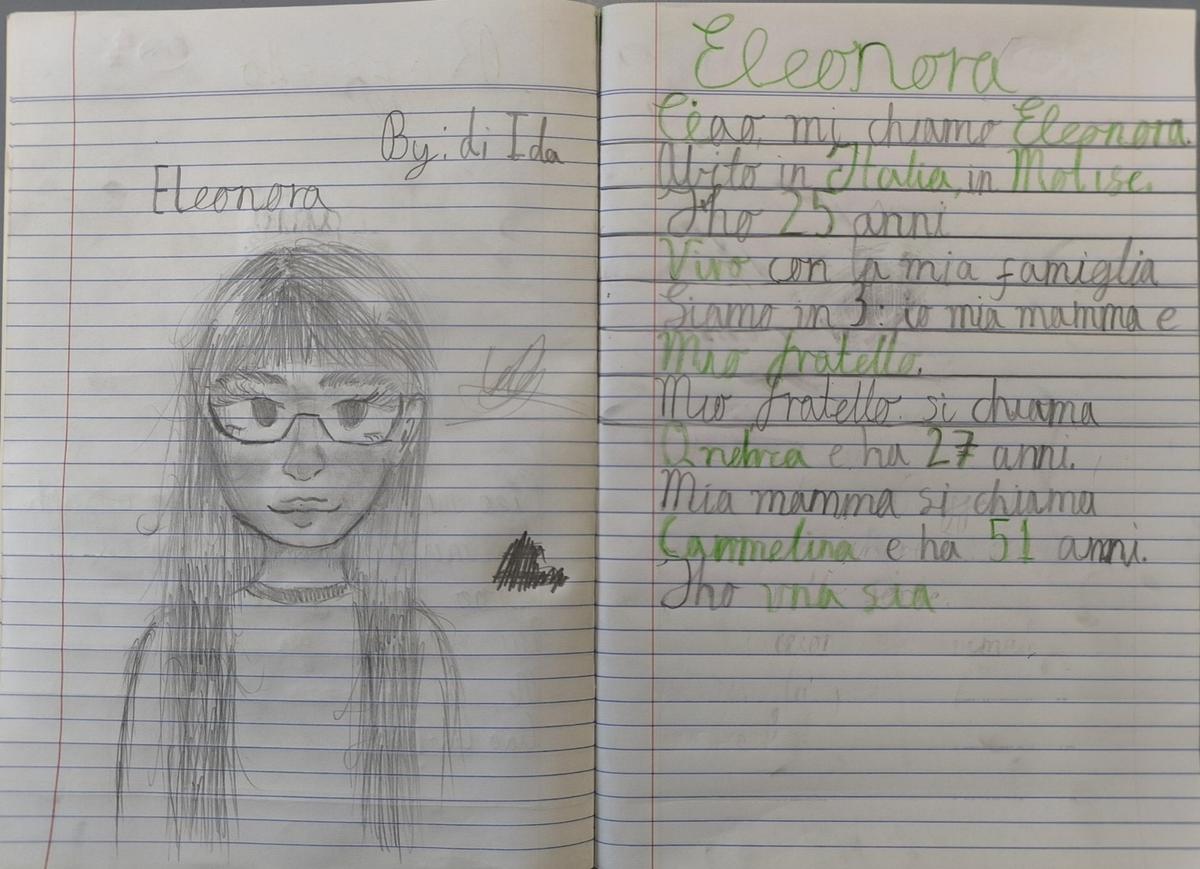 By: di Ida
Eleonora
Eleonora
Ciao, mi chiamo Eleonora.
Abito in Italia, in Molise.
Iho 25 anni
Vivo con la mia famiglia
Siamo in 3: io mia mamma e
Mio fratello.
Mio fratello si chiama
e ha 27 anni.
Mia mamma si chiama
Cammelina e ha 51 anni.
Iho una